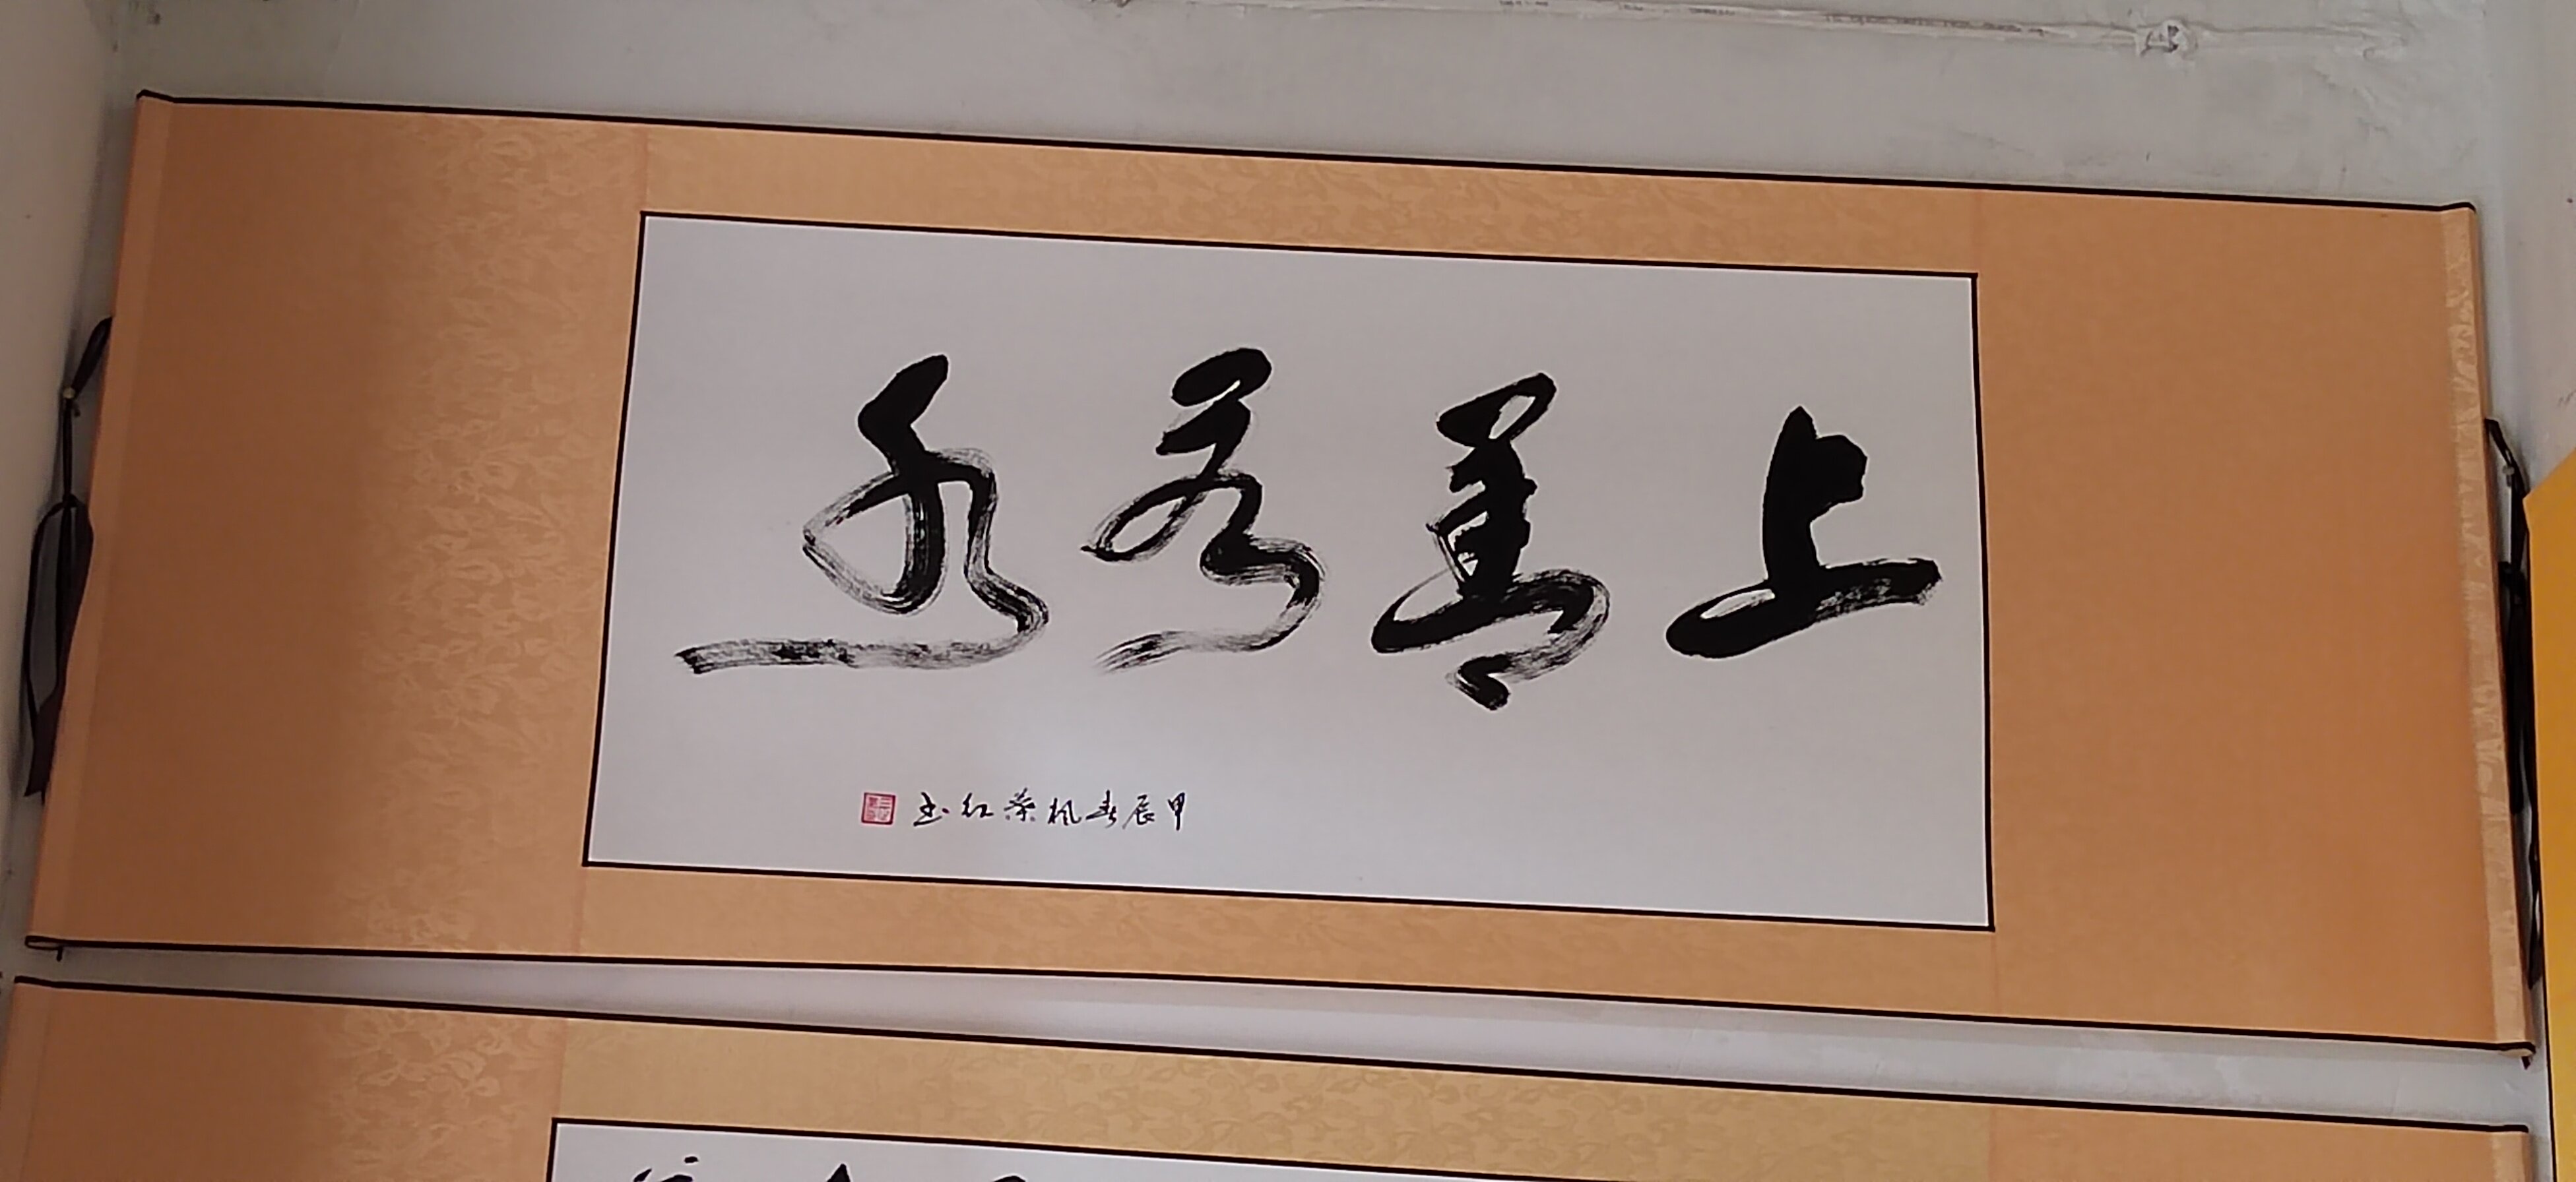 上善若水
甲辰春枫叶红书